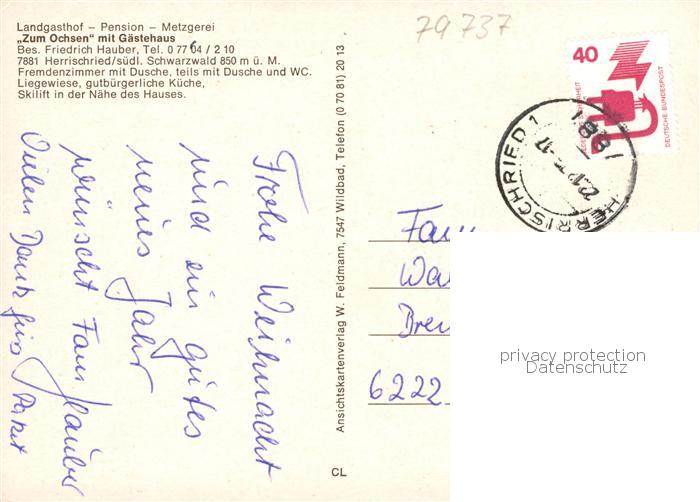 Landgasthof – Pension – Metzgerei
„Zum Ochsen“ mit Gästehaus
Bes. Friedrich Hauber, Tel. 0 77 64 / 2 10
7881 Herrischried/südl. Schwarzwald 850 m ü. M.
Fremdenzimmer mit Dusche, teils mit Dusche und WC.
Liegewiese, gutbürgerliche Küche,
Skilift in der Nähe des Hauses.
79737
40
DEUTSCHE BUNDESPOST
7881
HERRISCHRIED 1
Frohe Weihnacht
und ein gutes
neues Jahr
wünscht Fam Hauber
Vielen Dank fürs Paket
Ansichtskartenverlag W. Feldmann, 7547 Wildbad, Telefon (0 70 81) 20 13
Fam
6222
CL
privacy protection
Datenschutz